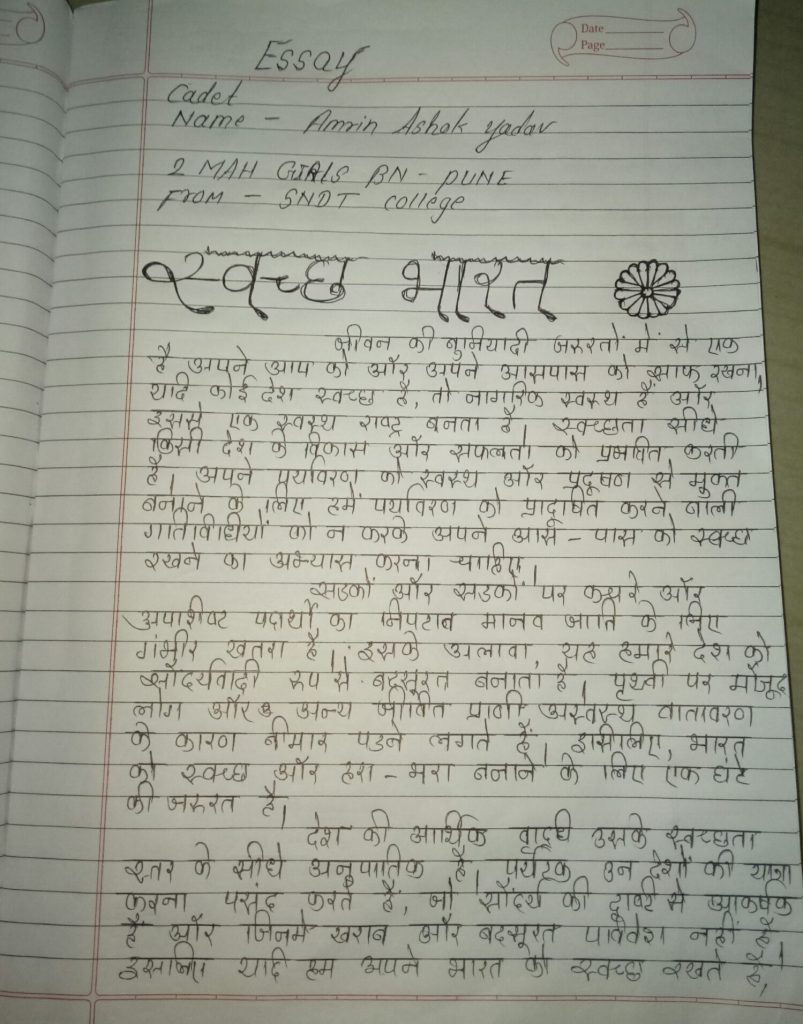 Date
Page
Essay
Cadet
Name - Amrin Ashok Yadav
2 MAH GIRLS BN - PUNE
From - SNDT college
स्वच्छ भारत
जीवन की बुनियादी जरुरतों में से एक
है अपने आप को और अपने आसपास को साफ रखना,
यदि कोई देश स्वच्छ है, तो नागरिक स्वस्थ हैं और
इससे एक स्वस्थ राष्ट्र बनता है। स्वच्छता सीधे
किसी देश के विकास और सफलता को प्रभावित करती
है। अपने पर्यावरण को स्वस्थ और प्रदूषण से मुक्त
बनाने के लिए हमें पर्यावरण को प्रादूषित करने वाली
गातिविधीयों को न करके अपने आस - पास को स्वच्छ
रखने का अभ्यास करना चाहिए।
सडकों और सडकों पर कचरे और
अपाशिष्ट पदार्थों का निपटान मानव जाति के लिए
गंभीर खतरा है। इसके अलावा, यह हमारे देश को
सौंदर्यवादी रूप से बदसूरत बनाता है। पृथ्वी पर मौजूद
लोग और अन्य जीवित प्राणी अस्वस्थ वातावरण
के कारण बीमार पडने लगते हैं। इसीलिए, भारत
को स्वच्छ और हरा - भरा बनाने के लिए एक घंटे
की जरुरत है।
देश की आर्थिक वृद्धि उसके स्वच्छता
स्तर के सीधे अनुपातिक है। पर्यटक उन देशों की यात्रा
करना पसंद करते हैं, जो सौंदर्य की दृष्टि से आकर्षक
हैं और जिनमे खराब और बदसूरत परिवेश नहीं है
इसलिए यदि हम अपने भारत को स्वच्छ रखते हैं,